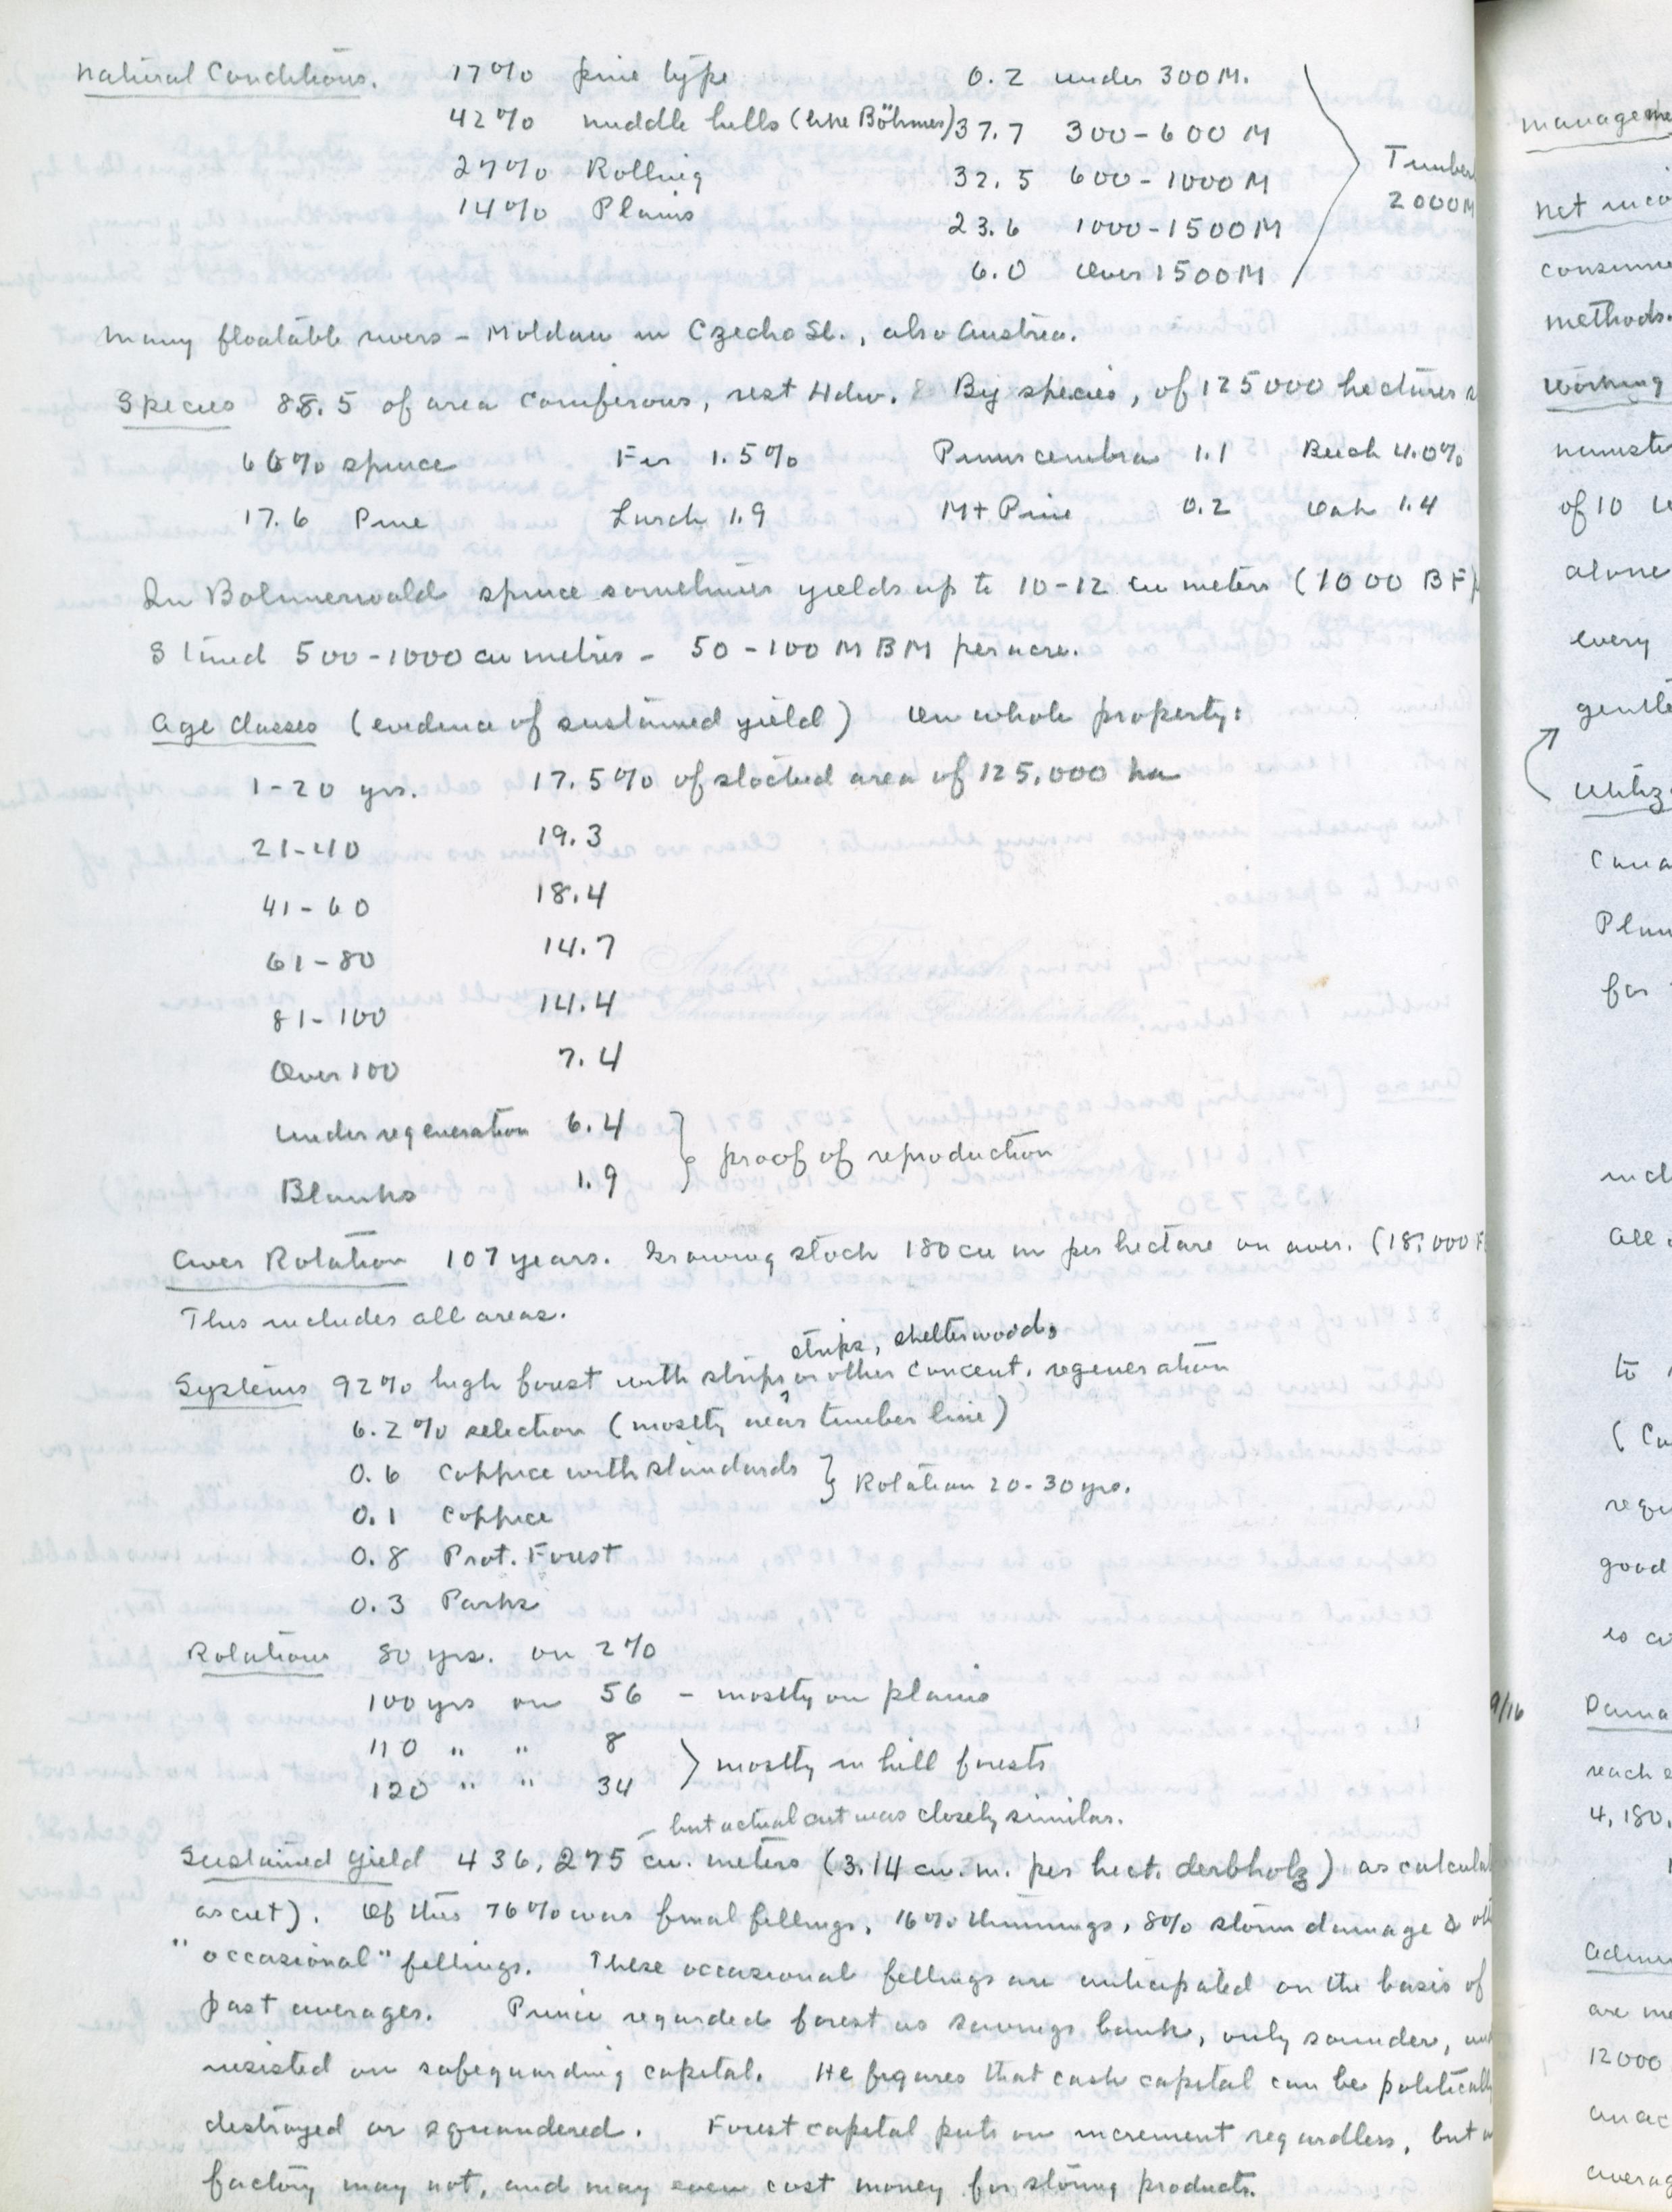 Natural Conditions. 17% pine type 0.2 under 300 M.
42% middle hills (like Böhmer) 37.7 300-600 M
27% Rolling 32.5 600-1000 M Timber
14% Plains 23.6 1000-1500 M 2000 M
6.0 Over 1500 M
Many floatable rivers - Moldau in Czecho Sl., also Austria.
Species 88.5 of area coniferous, rest Hdw. By species, of 125000 hectares
66% spruce Fir 1.5% Pinus cembra 1.1 Beech 4.0%
17.6 Pine Larch 1.9 Mt Pine 0.2 Oak 1.4
In Bohmerwald spruce sometimes yields up to 10-12 cu meters (1000 BF
Stand 500-1000 cu metres - 50-100 M BM per acre.
Age Classes (evidence of sustained yield) On whole property:
1-20 yrs. 17.5% of stocked area of 125,000 ha
21-40 19.3
41-60 18.4
61-80 14.7
81-100 14.4
Over 100 7.4
Under regeneration 6.4
proof of reproduction
Blanks 1.9
Aver Rotation 107 years. Growing stock 180 cu m per hectare on aver. (18,000 F
This includes all areas.
strips, shelterwoods
Systems 92% high forest with strips or other concent. regeneration
6.2% selection (mostly near timber line)
0.6 Coppice with standards
Rotation 20-30 yrs.
0.1 Coppice
0.8 Prot. Forest
0.3 Parks
Rotations 80 yrs. on 2%
100 yrs on 56 - mostly on plains
110 " " 8
mostly in hill forests
120 " " 34
- but actual cut was closely similar.
Sustained Yield 436,275 cu. meters (3.14 cu. m. per hect. derbholz) as calculat
as cut). Of this 76% was final fellings, 16% thinnings, 8% storm damage & oth
"occasional" fellings. These occasional fellings are anticipated on the basis of
past averages. Prince regarded forest as savings bank, only sounder, and
insisted on safeguarding capital. He figures that cash capital can be politically
destroyed or squandered. Forest capital puts on increment regardless, but a
factory may not, and may even cost money for storing products.
manageme
net inco
consume
methods.
working
of 10
alone
every
gentle
Utiliz
Cana
Plan
for
incl
all
to
(Co
requ
good
is
9/16 Dama
reach
4,180.
admin
are me
12000
an ac
averag